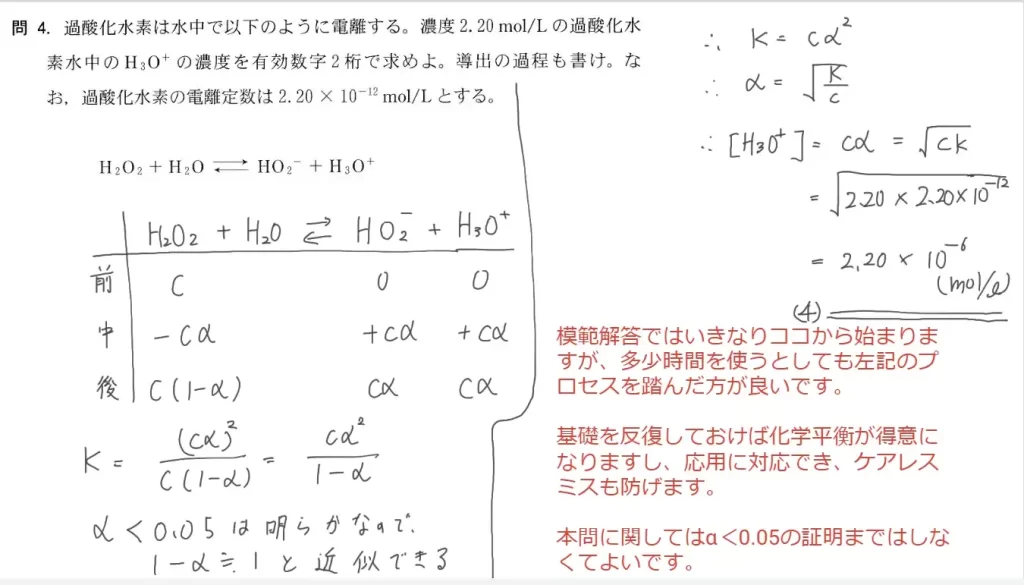 問 4. 過酸化水素は水中で以下のように電離する。濃度 2.20 mol/L の過酸化水
素水中の H₃O⁺ の濃度を有効数字 2 桁で求めよ。導出の過程も書け。な
お，過酸化水素の電離定数は 2.20 × 10⁻¹² mol/L とする。
H₂O₂ + H₂O ⇄ HO₂⁻ + H₃O⁺
H₂O₂ + H₂O ⇄ HO₂⁻ + H₃O⁺
前 C 0 0
中 -Cα +Cα +Cα
後 C(1-α) Cα Cα
K = (Cα)²/C(1-α) = Cα²/1-α
α < 0.05 は 明らかなので、
1-α ≒ 1 と 近似できる
∴ K = Cα²
∴ α = √K/C
∴ [H₃O⁺] = Cα = √CK
= √2.20 × 2.20 × 10⁻¹²
= 2.20 × 10⁻⁶
(mol/ℓ)
(4)
模範解答ではいきなりココから始まりま
すが、多少時間を使うとしても左記のプ
ロセスを踏んだ方が良いです。
基礎を反復しておけば化学平衡が得意に
なりますし、応用に対応でき、ケアレス
ミスも防げます。
本問に関してはα＜0.05の証明まではしな
くてよいです。